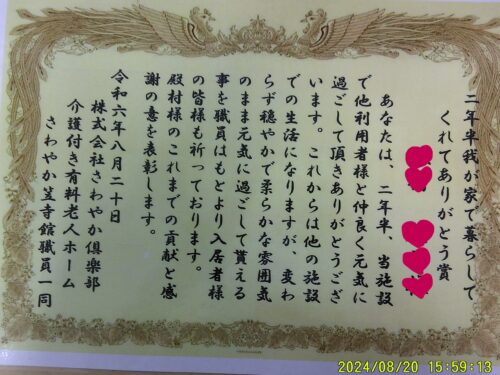 二年半我が家で暮らして
くれてありがとう賞
あなたは、二年半、当施設
で他利用者様と仲良く元気に
過ごして頂きありがとうござ
います。これからは他の施設
での生活になりますが、変わ
らず穏やかで柔らかな雰囲気
のまま元気に過ごして貰える
事を職員はもとより入居者様
の皆様も祈っております。
殿村様のこれまでの貢献と感
謝の意を表彰します。
令和六年八月二十日
株式会社さわやか倶楽部
介護付き有料老人ホーム
さわやか笠寺館職員一同
2024/08/20 15:59:13